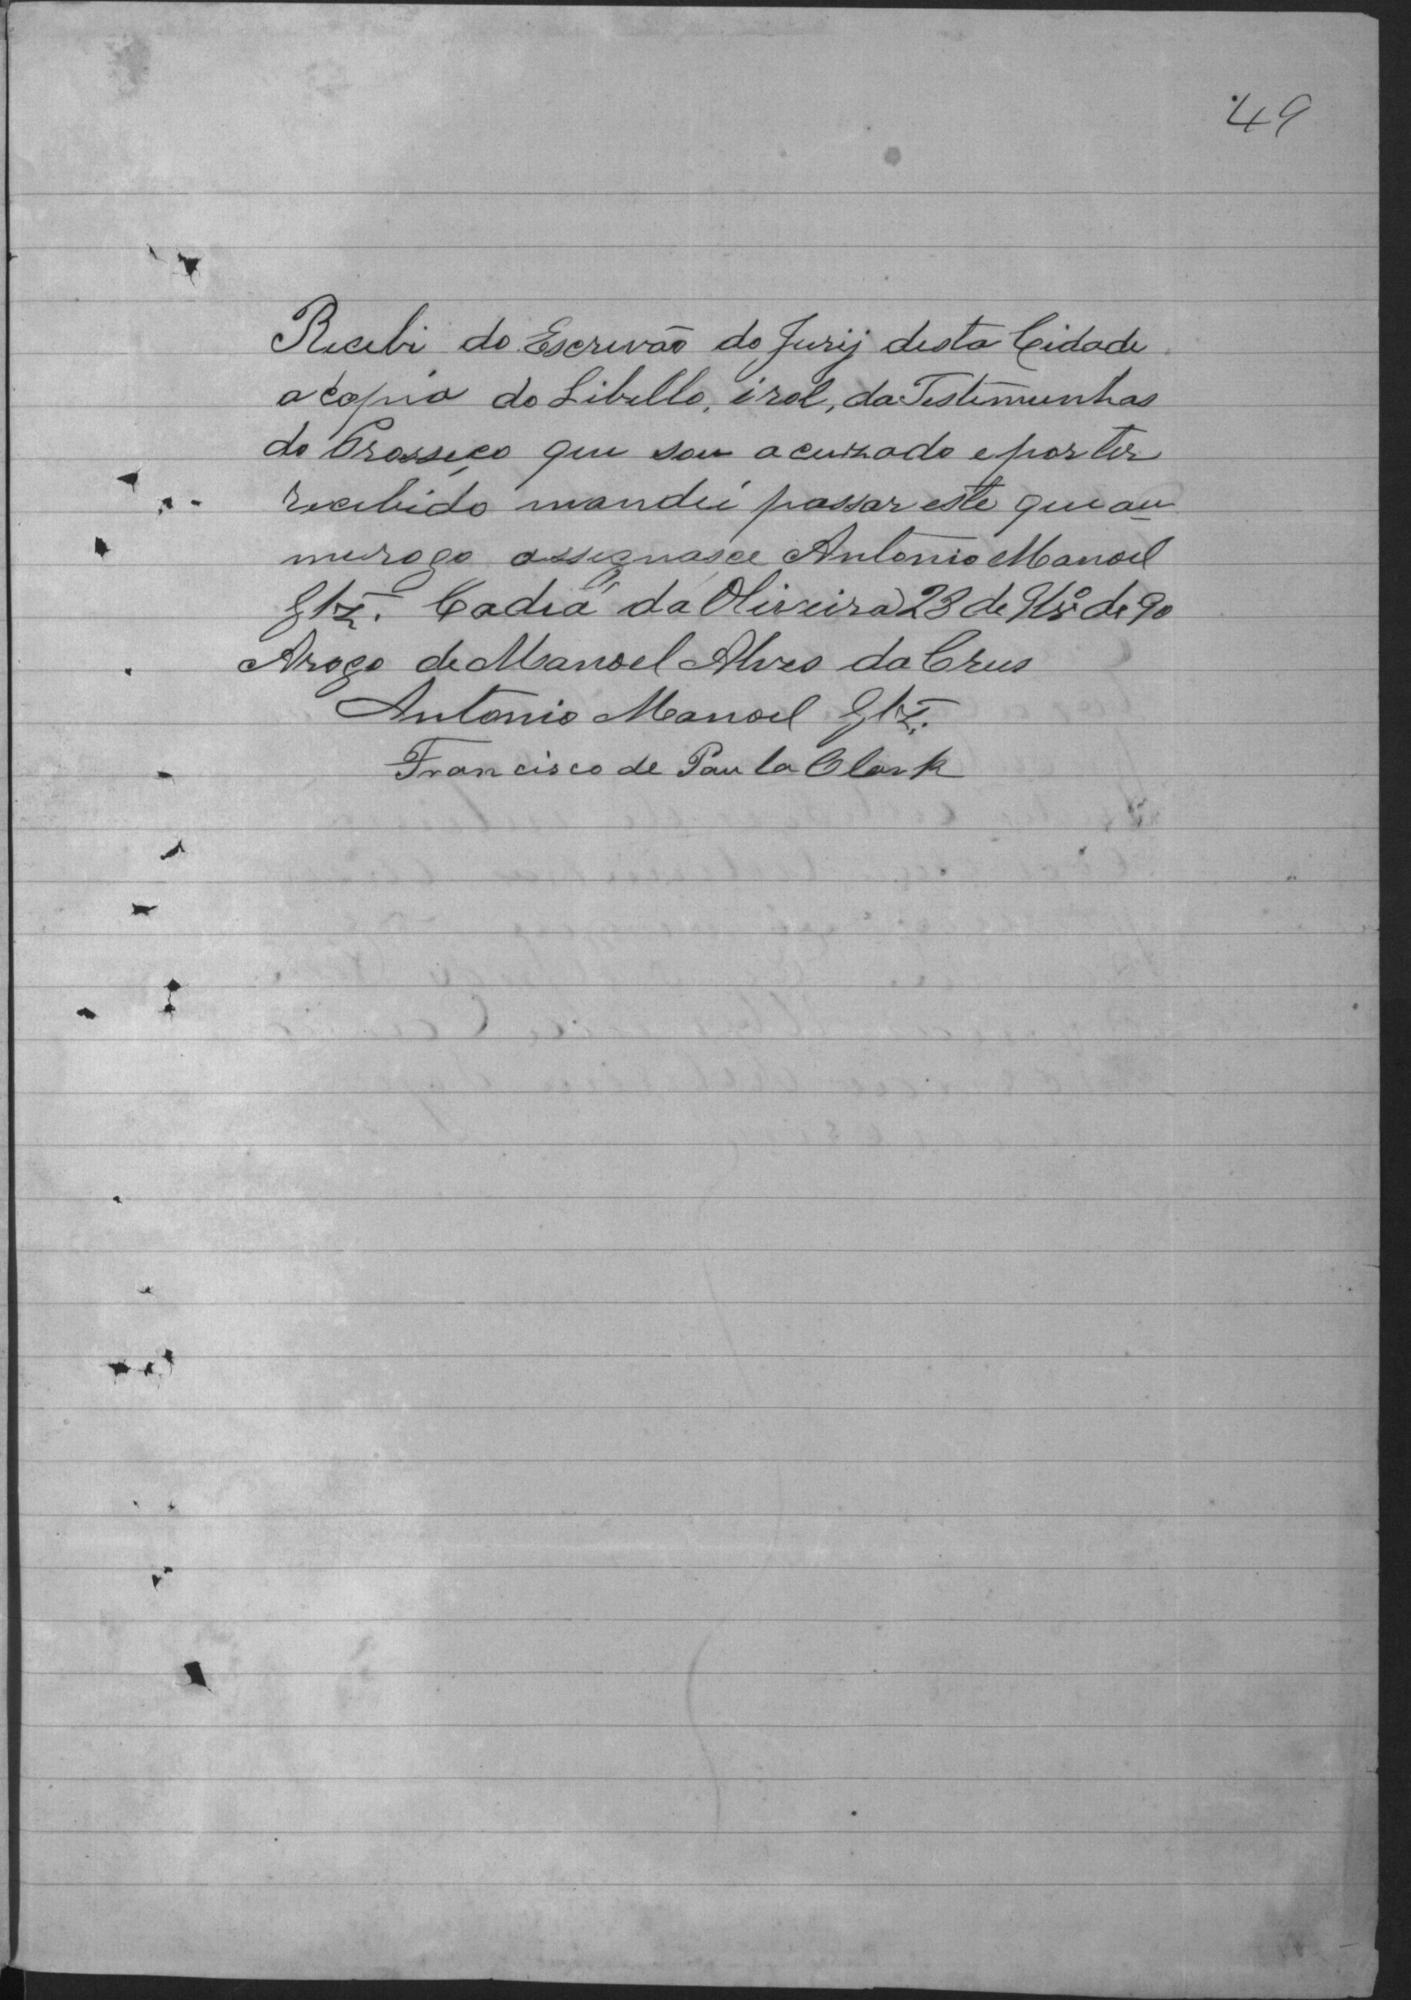 49
Recebi do Escrevão do Jurij desta Cidade
a copia do Libello, i rol, da Testimunhas
do Prosseço que sou acuzado e por ter
recebido mandei passar este que au
meurogo assignasce Antonio Manoel
Glz. Cadeia da Oliveira 23 de 9br.º de 90
Arogo de Manoel Alves da Crus
Antonio Manoel Glz.
Francisco de Paula Clark